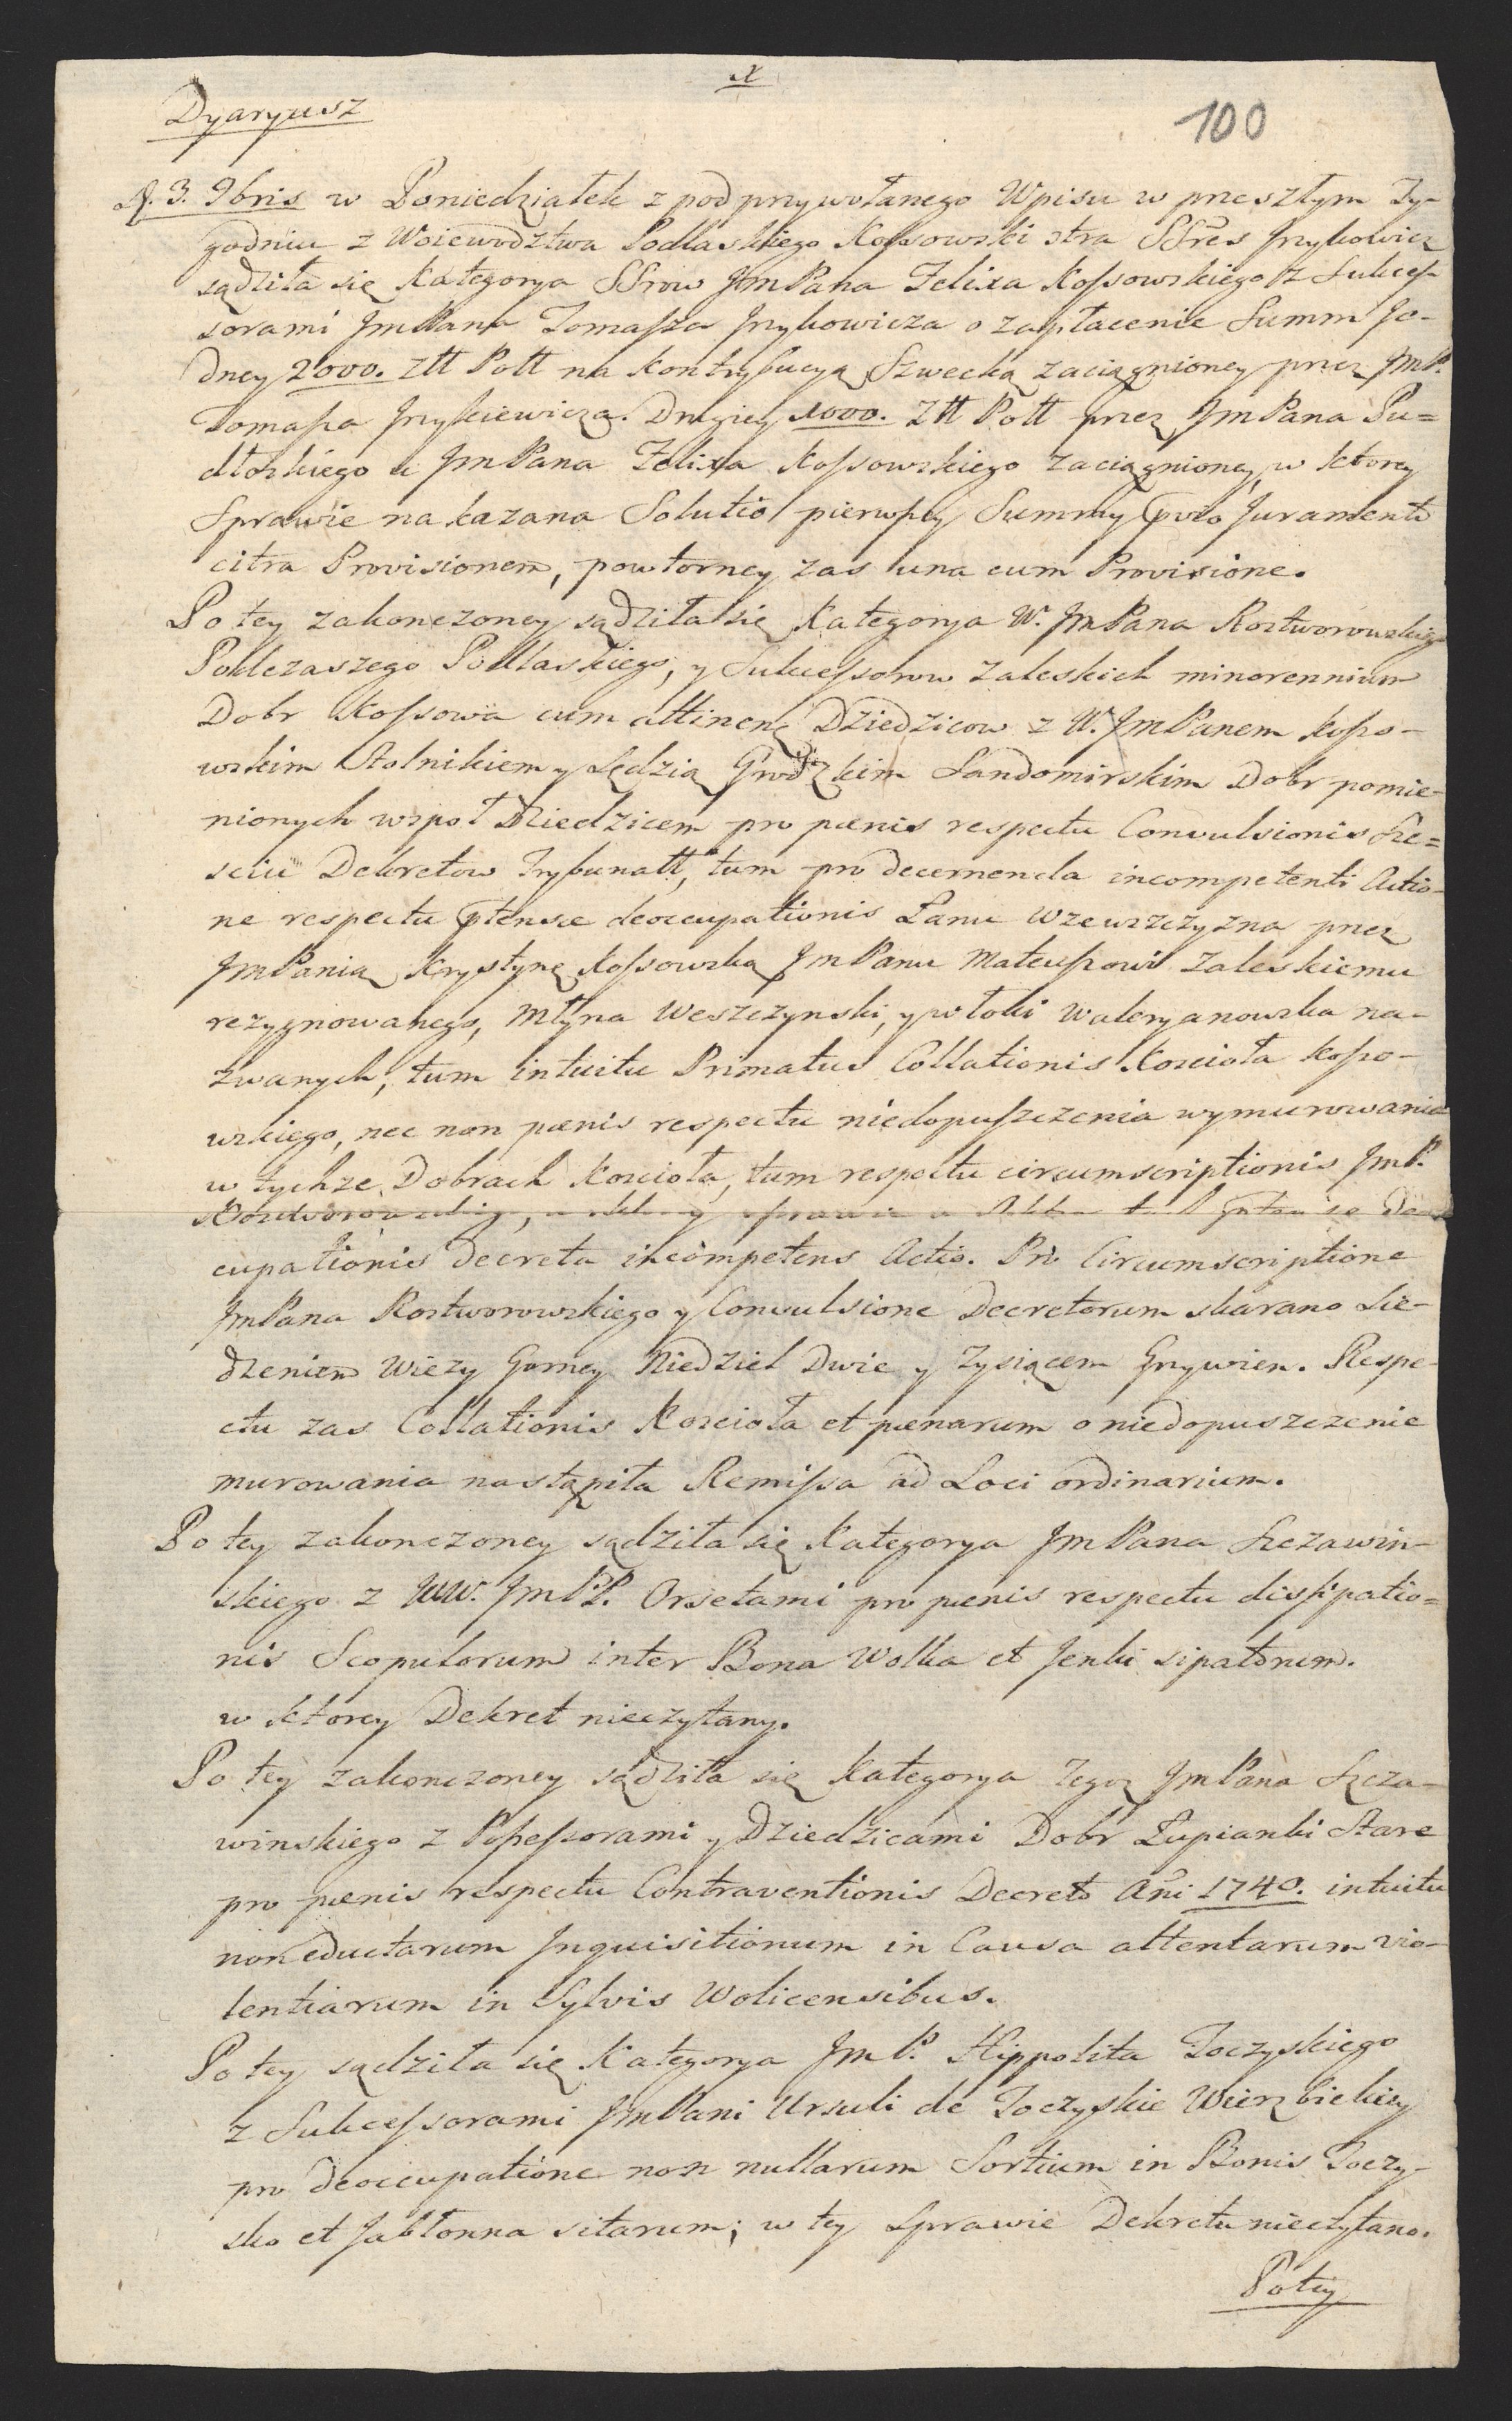 X
Dyaryusz
100
D. 3. 9bris w Poniedziałek z pod przywołanego Wpisu w przeszłym Ty-
godniu z Woiewodztwa Podlaskiego Kossowski ctra SSres Jrzykowicz
sądziła się Kategorya SSrow JmPana Felixa Kossowskiego z Sukces-
sorami JmPana Tomasza Jrzykowicza o zapłacenie Summ Je-
dney 2000. Ztt Poll na Kontrybucyą Szwecką zaciągnioney przez JmP.
Tomasza Jrzykiewicza. Drugiey 1000. Ztt Poll przez JmPana Pu=
dłoskiego u JmPana Felixa Kossowskiego zaciągnioney, w ktorey
Sprawie nakazana Solutio pierwszey Summy pvio Juramento
citra Provisionem, powtorney zas una cum Provisione.
Po tey zakonczoney sądziła się Kategorya W. JmPana Roztworowskiego
Podczaszego Podlaskiego, y Sukcessorow Zaleskich minorennium
Dobr Kossowa cum attinen Dziedzicow z W. JmPanem Kosso-
wskim Stolnikiem y Sędzią Grodzkim Sandomirskim Dobr pomie-
nionych wspoł Dziedzicem pro pænis respectu Convulsionis Sze=
sciu Dekretow Trybunall, tum pro decernenda incompetenti Actio-
ne respectu ptensæ deoccupationis Łanu Wzewszczyzna przez
JmPanią Krystynę Kossowską JmPanu Mateuszowi Zaleskiemu
rezygnowanego, Młyna Weszczynski, y włoki Waleryanowska na-
zwanych, tum intuitu Primatus Collationis Koscioła Kosso-
wskiego, nec non pænis respectu niedopuszczenia wymurowania
w tychze Dobrach Koscioła, tum respectu circumscriptionis JmP.
Roztworowskiego, w ktorey sprawie
cupationis decreta incompetens Actio. Pro Circumscriptione
JmPana Roztworowskiego y Convulsione Decretorum skarano Sie-
dzeniem Wiezy Gorney Niedziel Dwie y Tysiącem Grzywien. Respe-
ctu zas Collationis Koscioła et pænarum o niedopuszczenie
murowania nastąpiła Remissa ad Loci ordinarium.
Po tey zakonczoney sądziła się Kategorya JmPana Szczawin-
skiego z WW. JmPP. Orsetami pro pænis respectu dissipatio=
nis Scopulorum inter Bona Wolka et Jenki sipatorum.
w ktorey Dekret nieczytany.
Po tey zakonczoney sądziła się Kategorya tegoz JmPana Szcza-
winskiego z Possessorami y Dziedzicami Dobr Łupianki Stare
pro pænis respectu Contraventionis Decreto Añi 1740. intuitu
non eductarum Jnquisitionum in Causa attentarum vio-
lentiarum in Sylvis Wolicensibus.
Po tey sądziła się Kategorya JmP. Hippolita Toczyskiego
z Sukcessorami JmPani Ursuli de Toczyskie Wierzbickiey
pro deoccupatione non nullarum Sortium in Bonis Toczy-
sko et Jabłonna sitarum; w tey Sprawie Dekretu nieczytano.
Potey